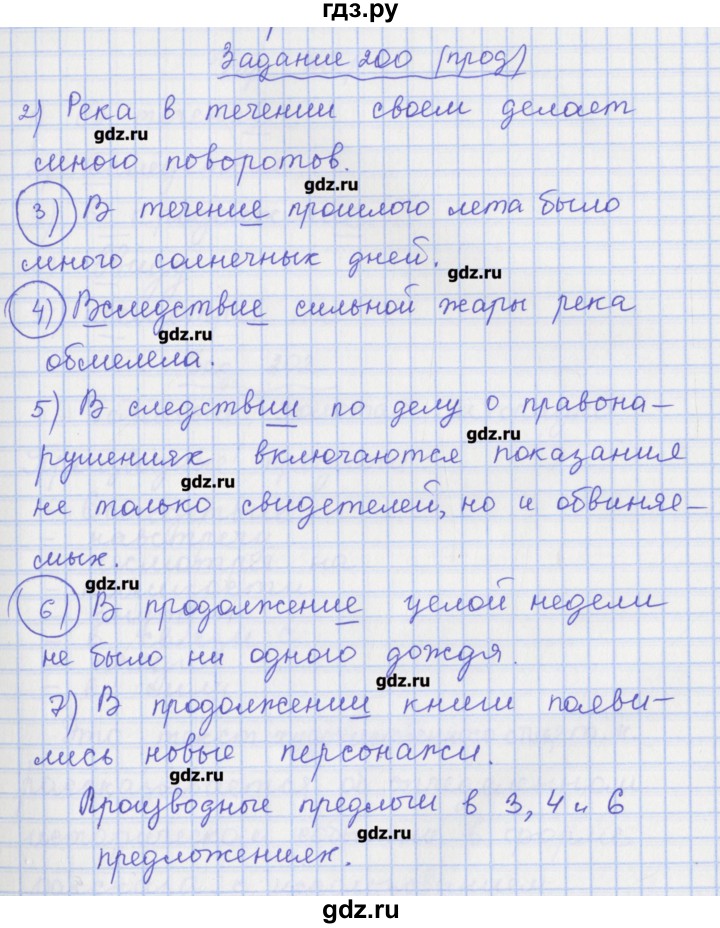 гдз.ру
Задание 200 (прод)
2) Река в течении своем делает
gdz.ru
много поворотов.
gdz.ru
3) В течение прошлого лета было
много солнечных дней.
gdz.ru
4) Вследствие сильной жары река
gdz.ru
обмелела.
5) В следствии по делу о правона-
gdz.ru
рушениях включаются показания
gdz.ru
не только свидетелей, но и обвиняе-
мых.
gdz.ru
6) В продолжение целой недели
не было ни одного дождя.
gdz.ru
7) В продолжении книги появи-
лись новые персонажи.
gdz.ru
Производные предлоги в 3, 4 и 6
gdz.ru
предложениях.
gdz.ru